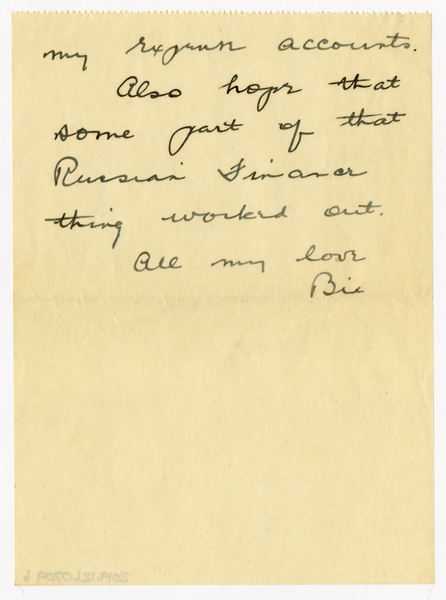 my expense accounts.
Also hope that
some part of that
Russian Finance
thing worked out.
All my love
Bie
2019.121.0709 b